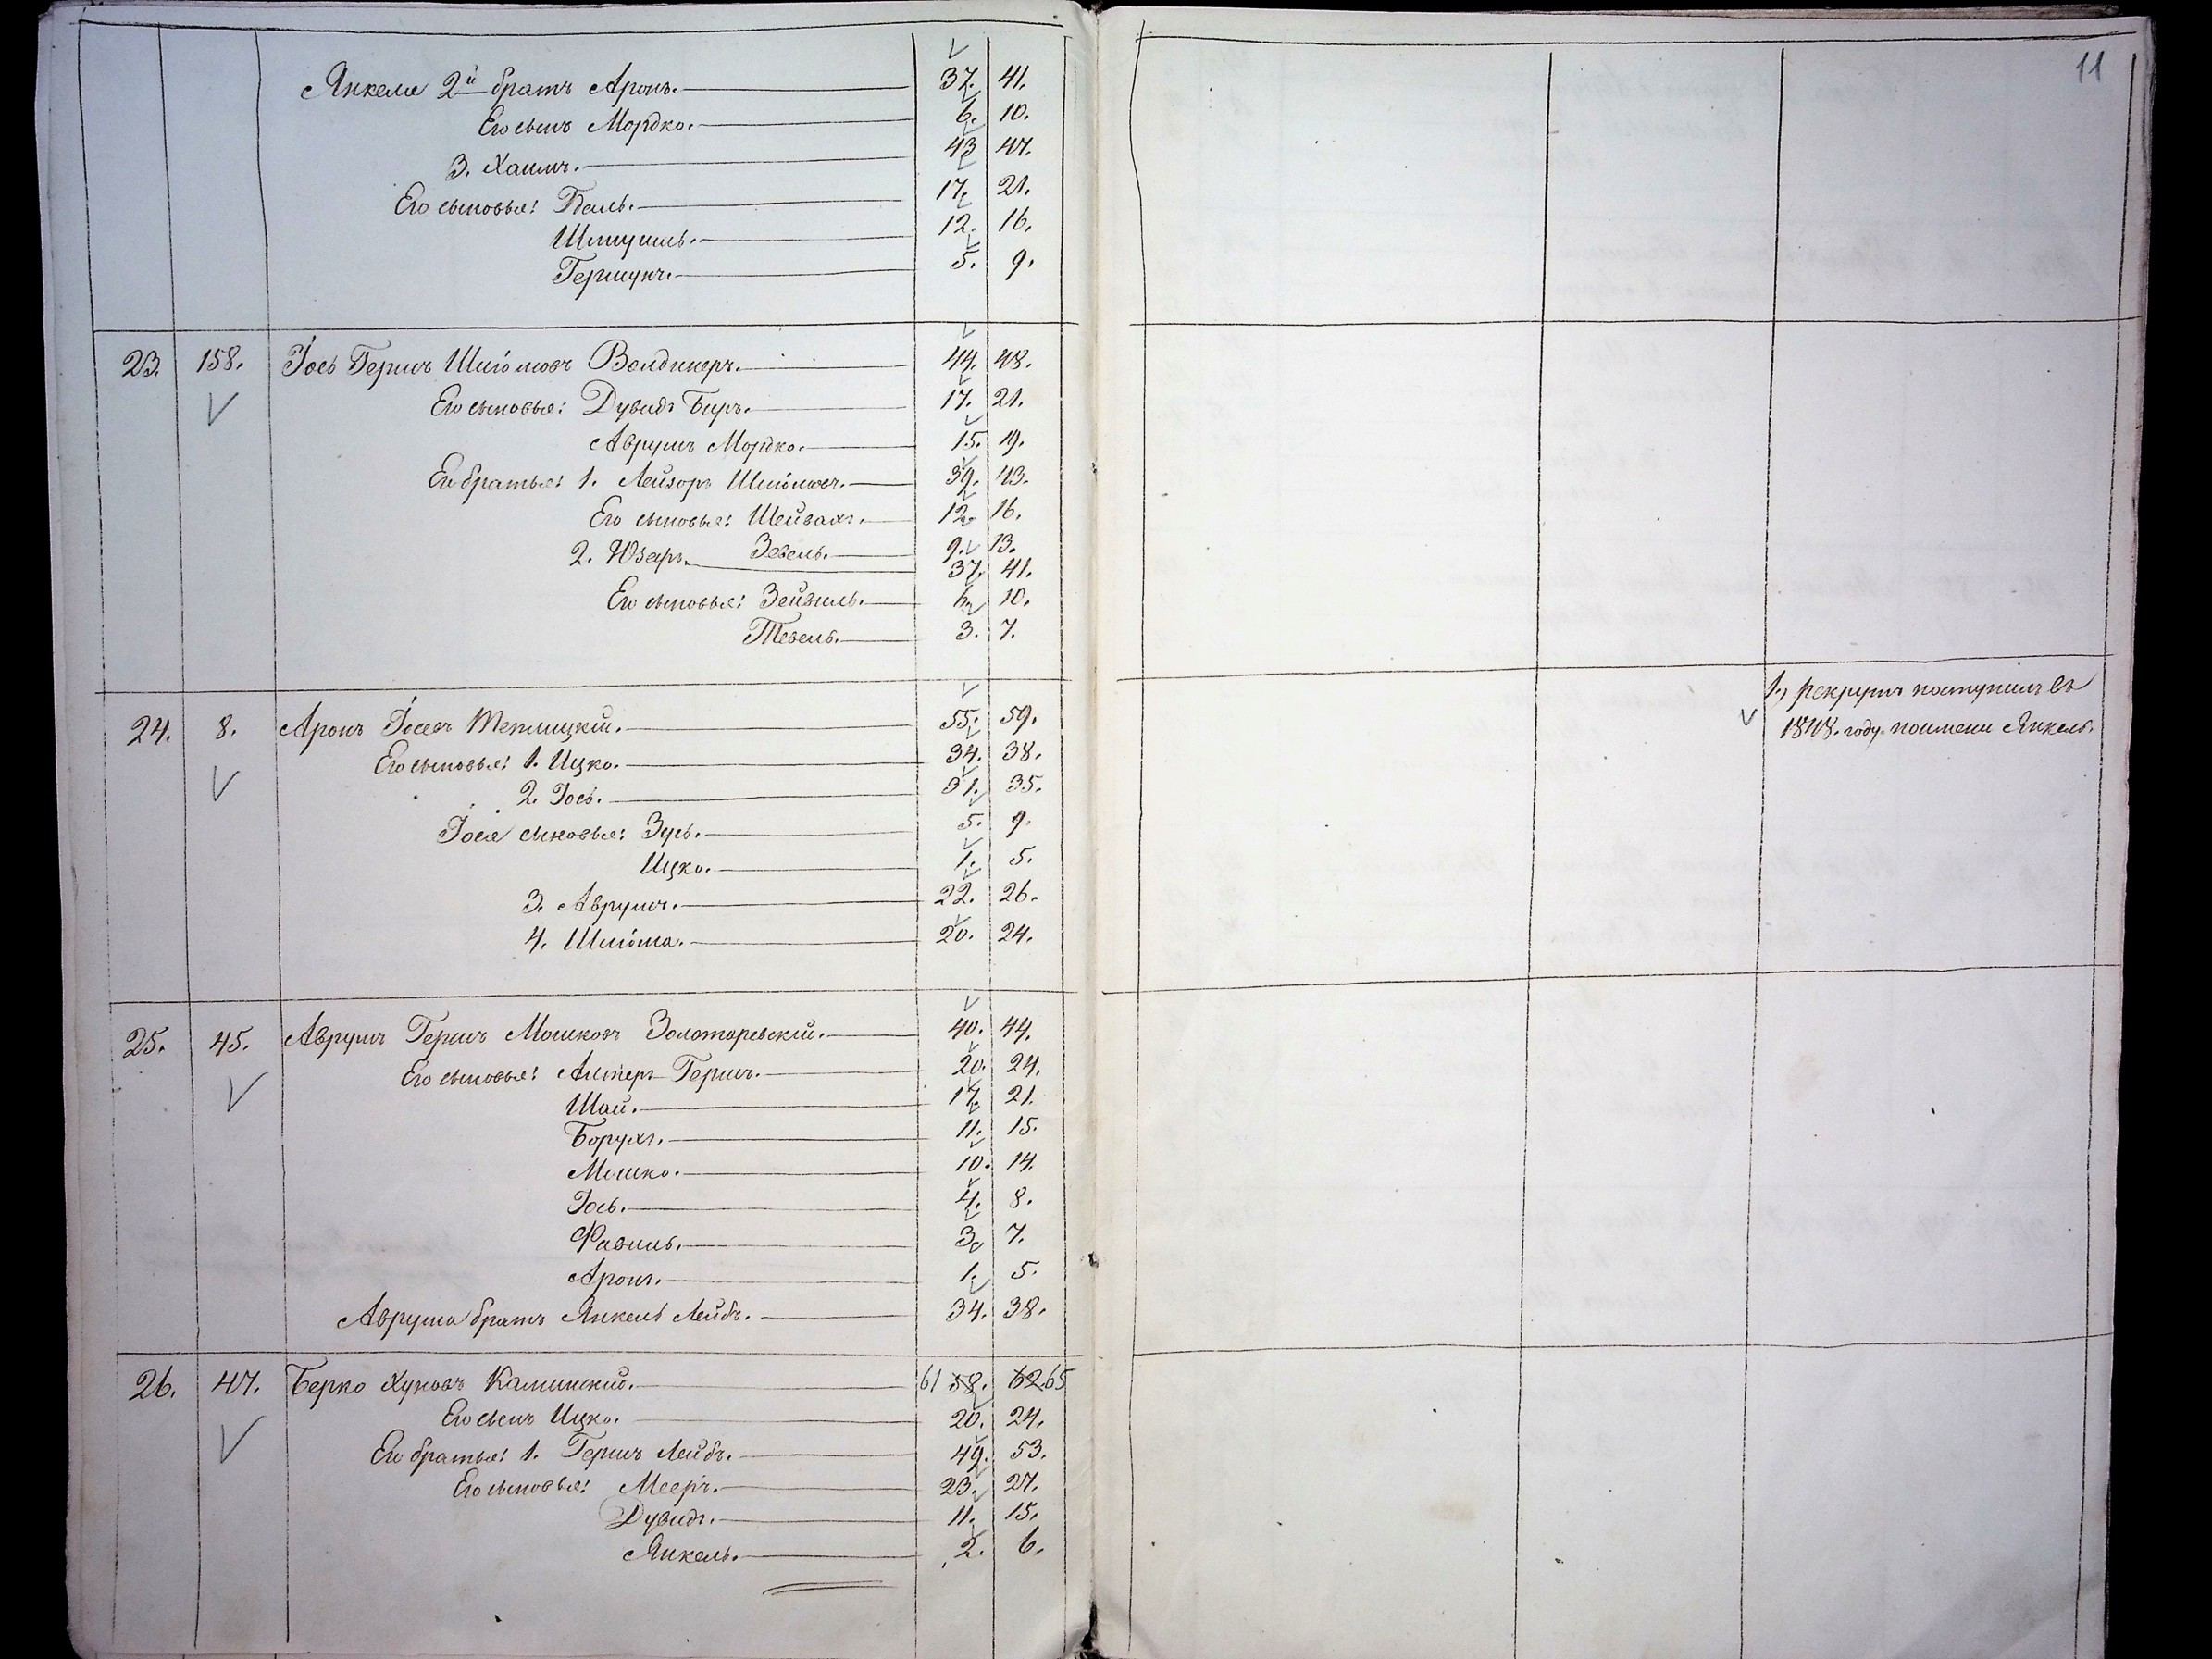 11
Янкеля 2й братъ Аронъ. 37. 41.
Его сынъ Мордко. 6. 10.
3. Хаимъ. 43 47.
Его сыновья: 17. 21.
Шмуиль. 12. 16.
Гершунъ. 5. 9.
23. 158. Іось Гершъ Шліомовъ 44. 48.
Его сыновья: Дувидъ Беръ. 17. 21.
Аврумъ Мордко. 15. 19.
Его братья: 1. Лейзоръ Шліомовъ. 39. 43.
Его сыновья: Шейвахъ. 12. 16.
Зевель. 9. 13.
2. Юзеръ. 37. 41.
Его сыновья: Зейвиль. 6. 10.
Тевель. 3. 7.
24. 8. Аронъ Іосевъ Теплицкій. 55. 59.
1, рекрутъ поступилъ въ
1848. году поимени Янкель.
Его сыновья: 1. Ицко. 34. 38.
2. Іось. 31. 35.
Іося сыновья: Зусь. 5. 9.
Ицко. 1. 5.
3. Аврумъ. 22. 26.
4. Шліома. 20. 24.
25. 45. Аврумъ Гершъ Мошковъ Золотаревскій. 40. 44.
Его сыновья: Алтеръ Гершъ. 20. 24.
Шай. 17. 21.
Борухъ. 11. 15.
Мошко. 10. 14.
Іось. 4. 8.
Фавиль. 3. 7.
Аронъ. 1. 5.
Аврума братъ Янкель Лейбъ. 34. 38.
26. 47. Берко Хуновъ Каминскій. 61 58. 62. 65
Его сынъ Ицко. 20. 24.
Его братья: 1. Гершъ Лейбъ. 49. 53.
Его сыновья: Мееръ. 23. 27.
Дувидъ. 11. 15.
Янкель. 2. 6.